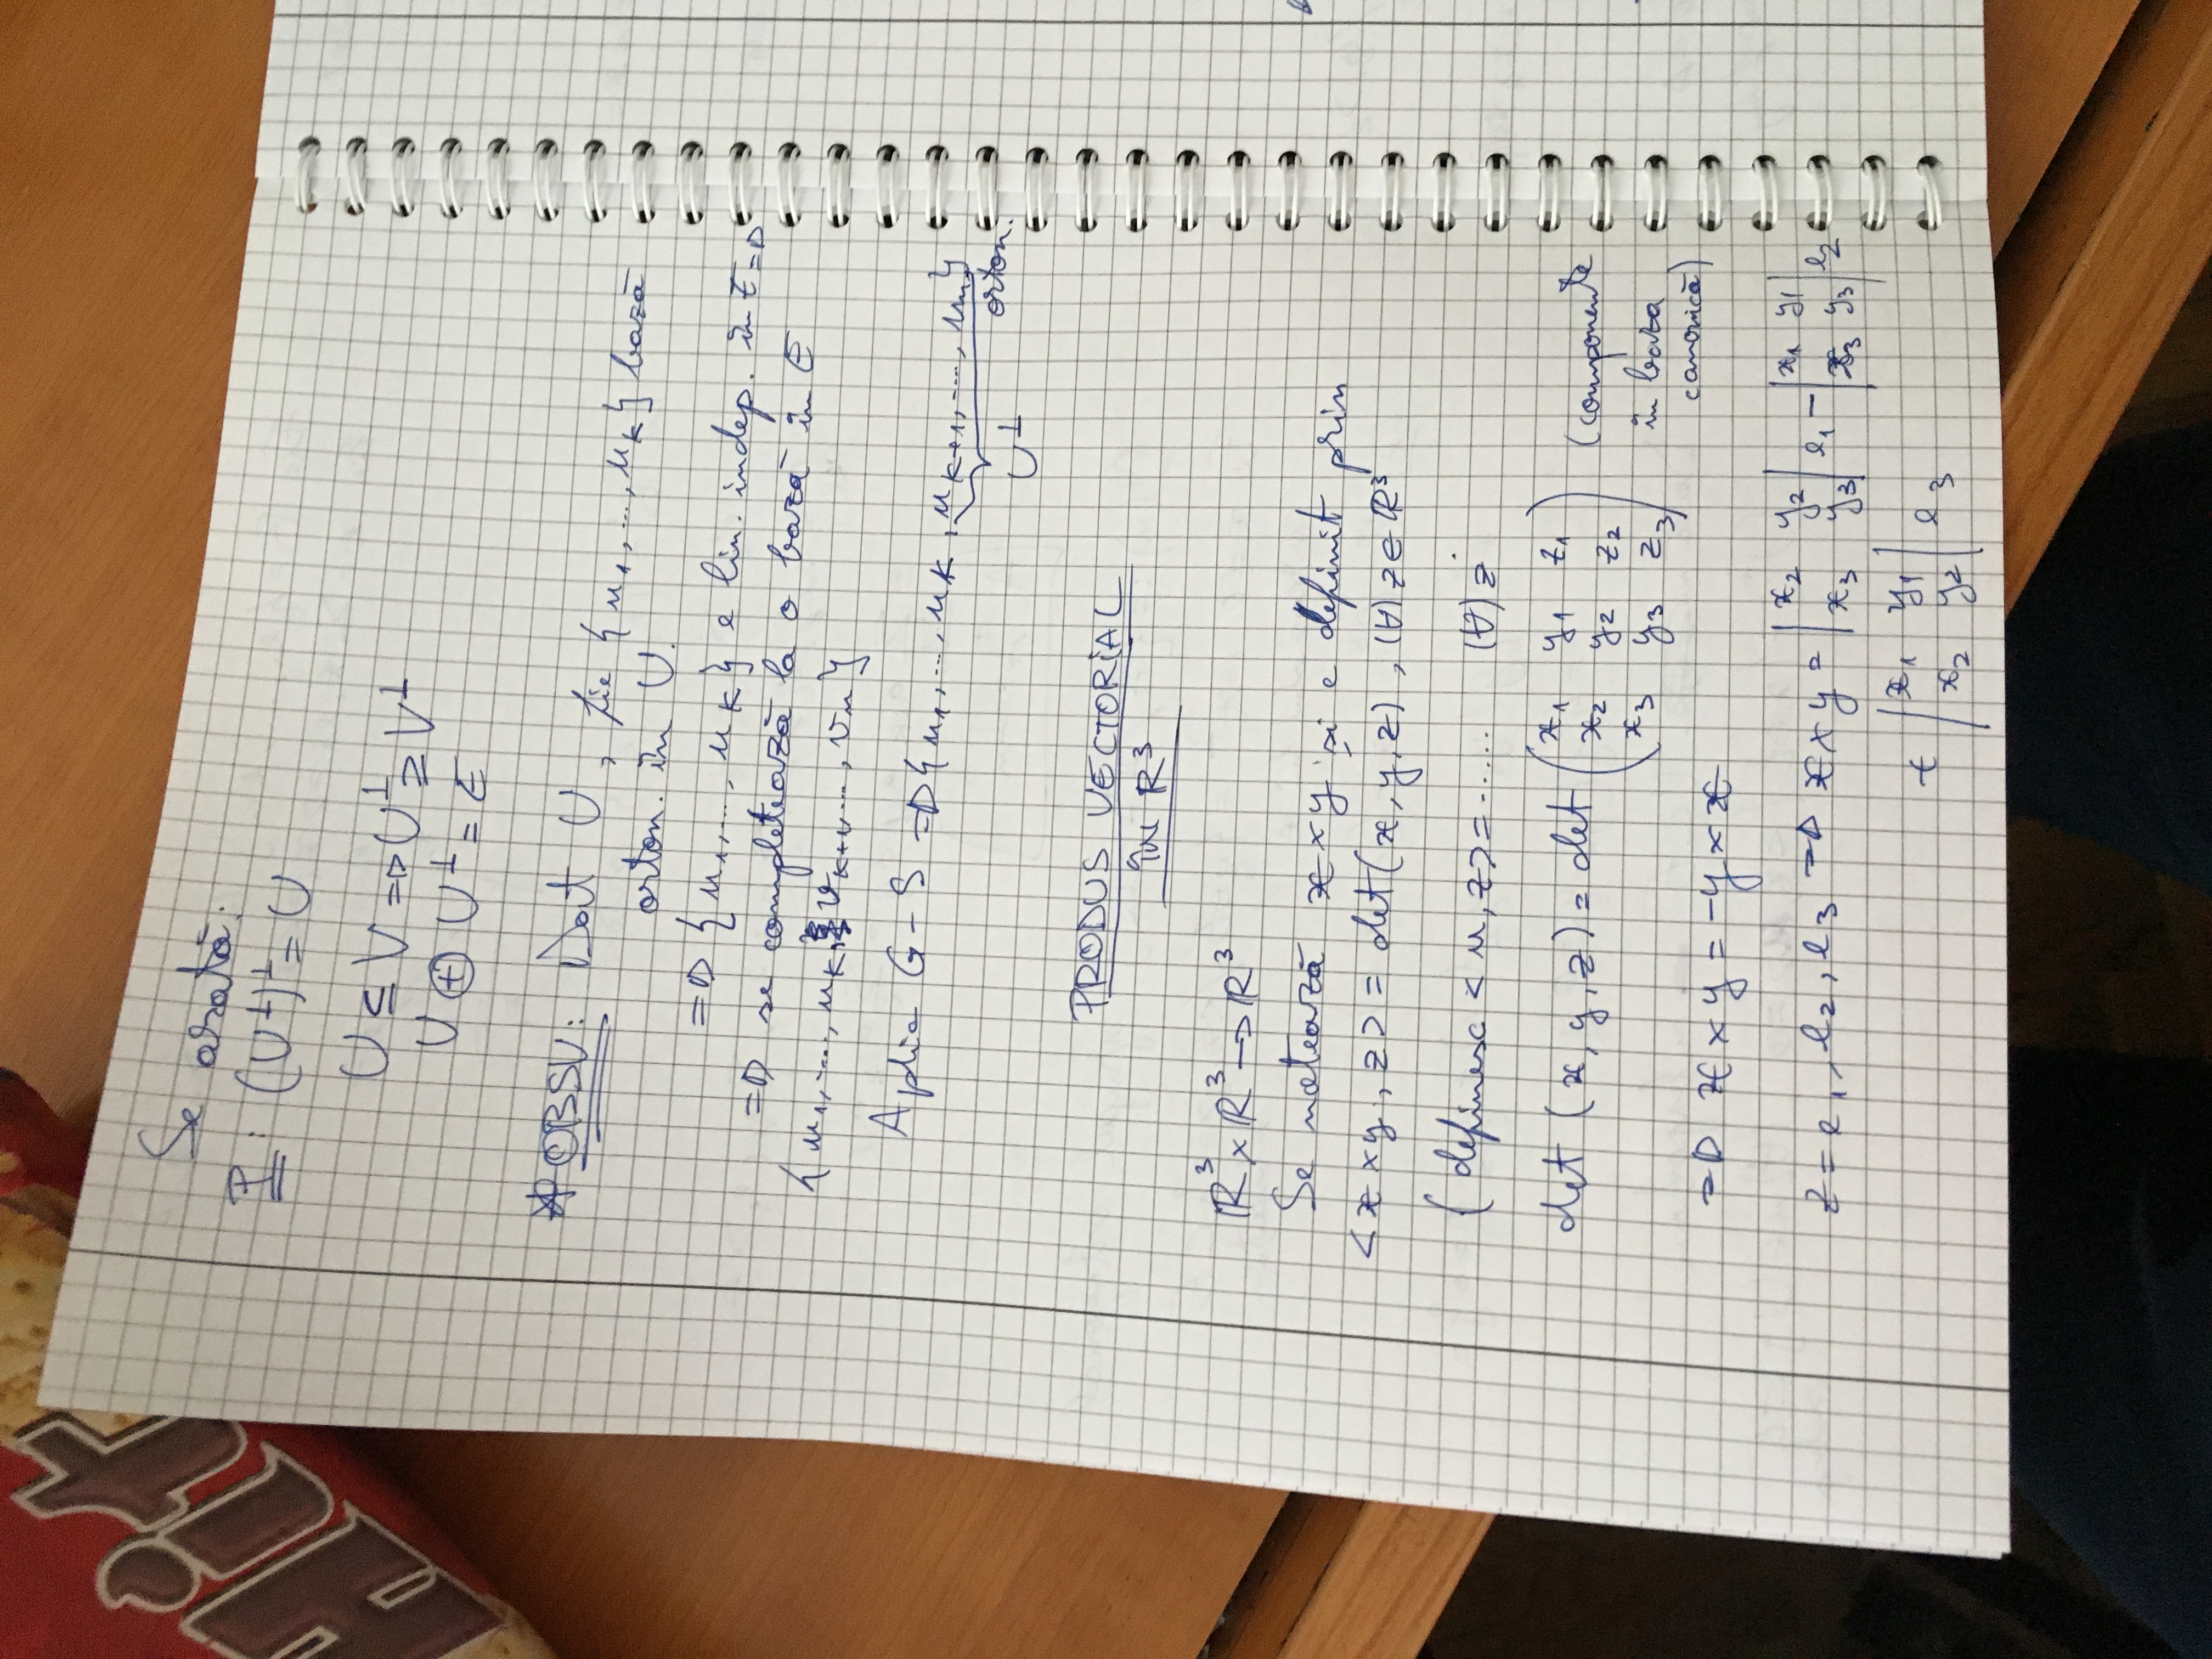 Se arată:
P: (U⊥)⊥ = U
U ⊆ V => U⊥ ⊇ V⊥
U ⊕ U⊥ = E
* OBSV: Dat U, fie {u1, ..., uk} bază
orton. în U.
=> {u1, ..., uk} e lin. indep. în E =>
=> se completează la o bază în E
{u1, ..., uk, vk+1, ..., vn}
Aplic G-S => {u1, ..., uk, uk+1, ..., un}
U⊥ orton.
PRODUS VECTORIAL
ÎN R³
R³ × R³ → R³
Se notează x × y și e definit prin
<x × y, z> = det(x, y, z), (∀) z ∈ R³
(definesc <u, z> = ...... (∀) z.
det (x, y, z) = det ( x1 y1 z1
x2 y2 z2
x3 y3 z3 )
(componente
în baza
canonică)
=> x × y = -y × x
z = e1, e2, e3 => x × y = | x2 y2 | e1 - | x1 y1 | e2
| x3 y3 | | x3 y3 |
+ | x1 y1 | e3
| x2 y2 |
Hit